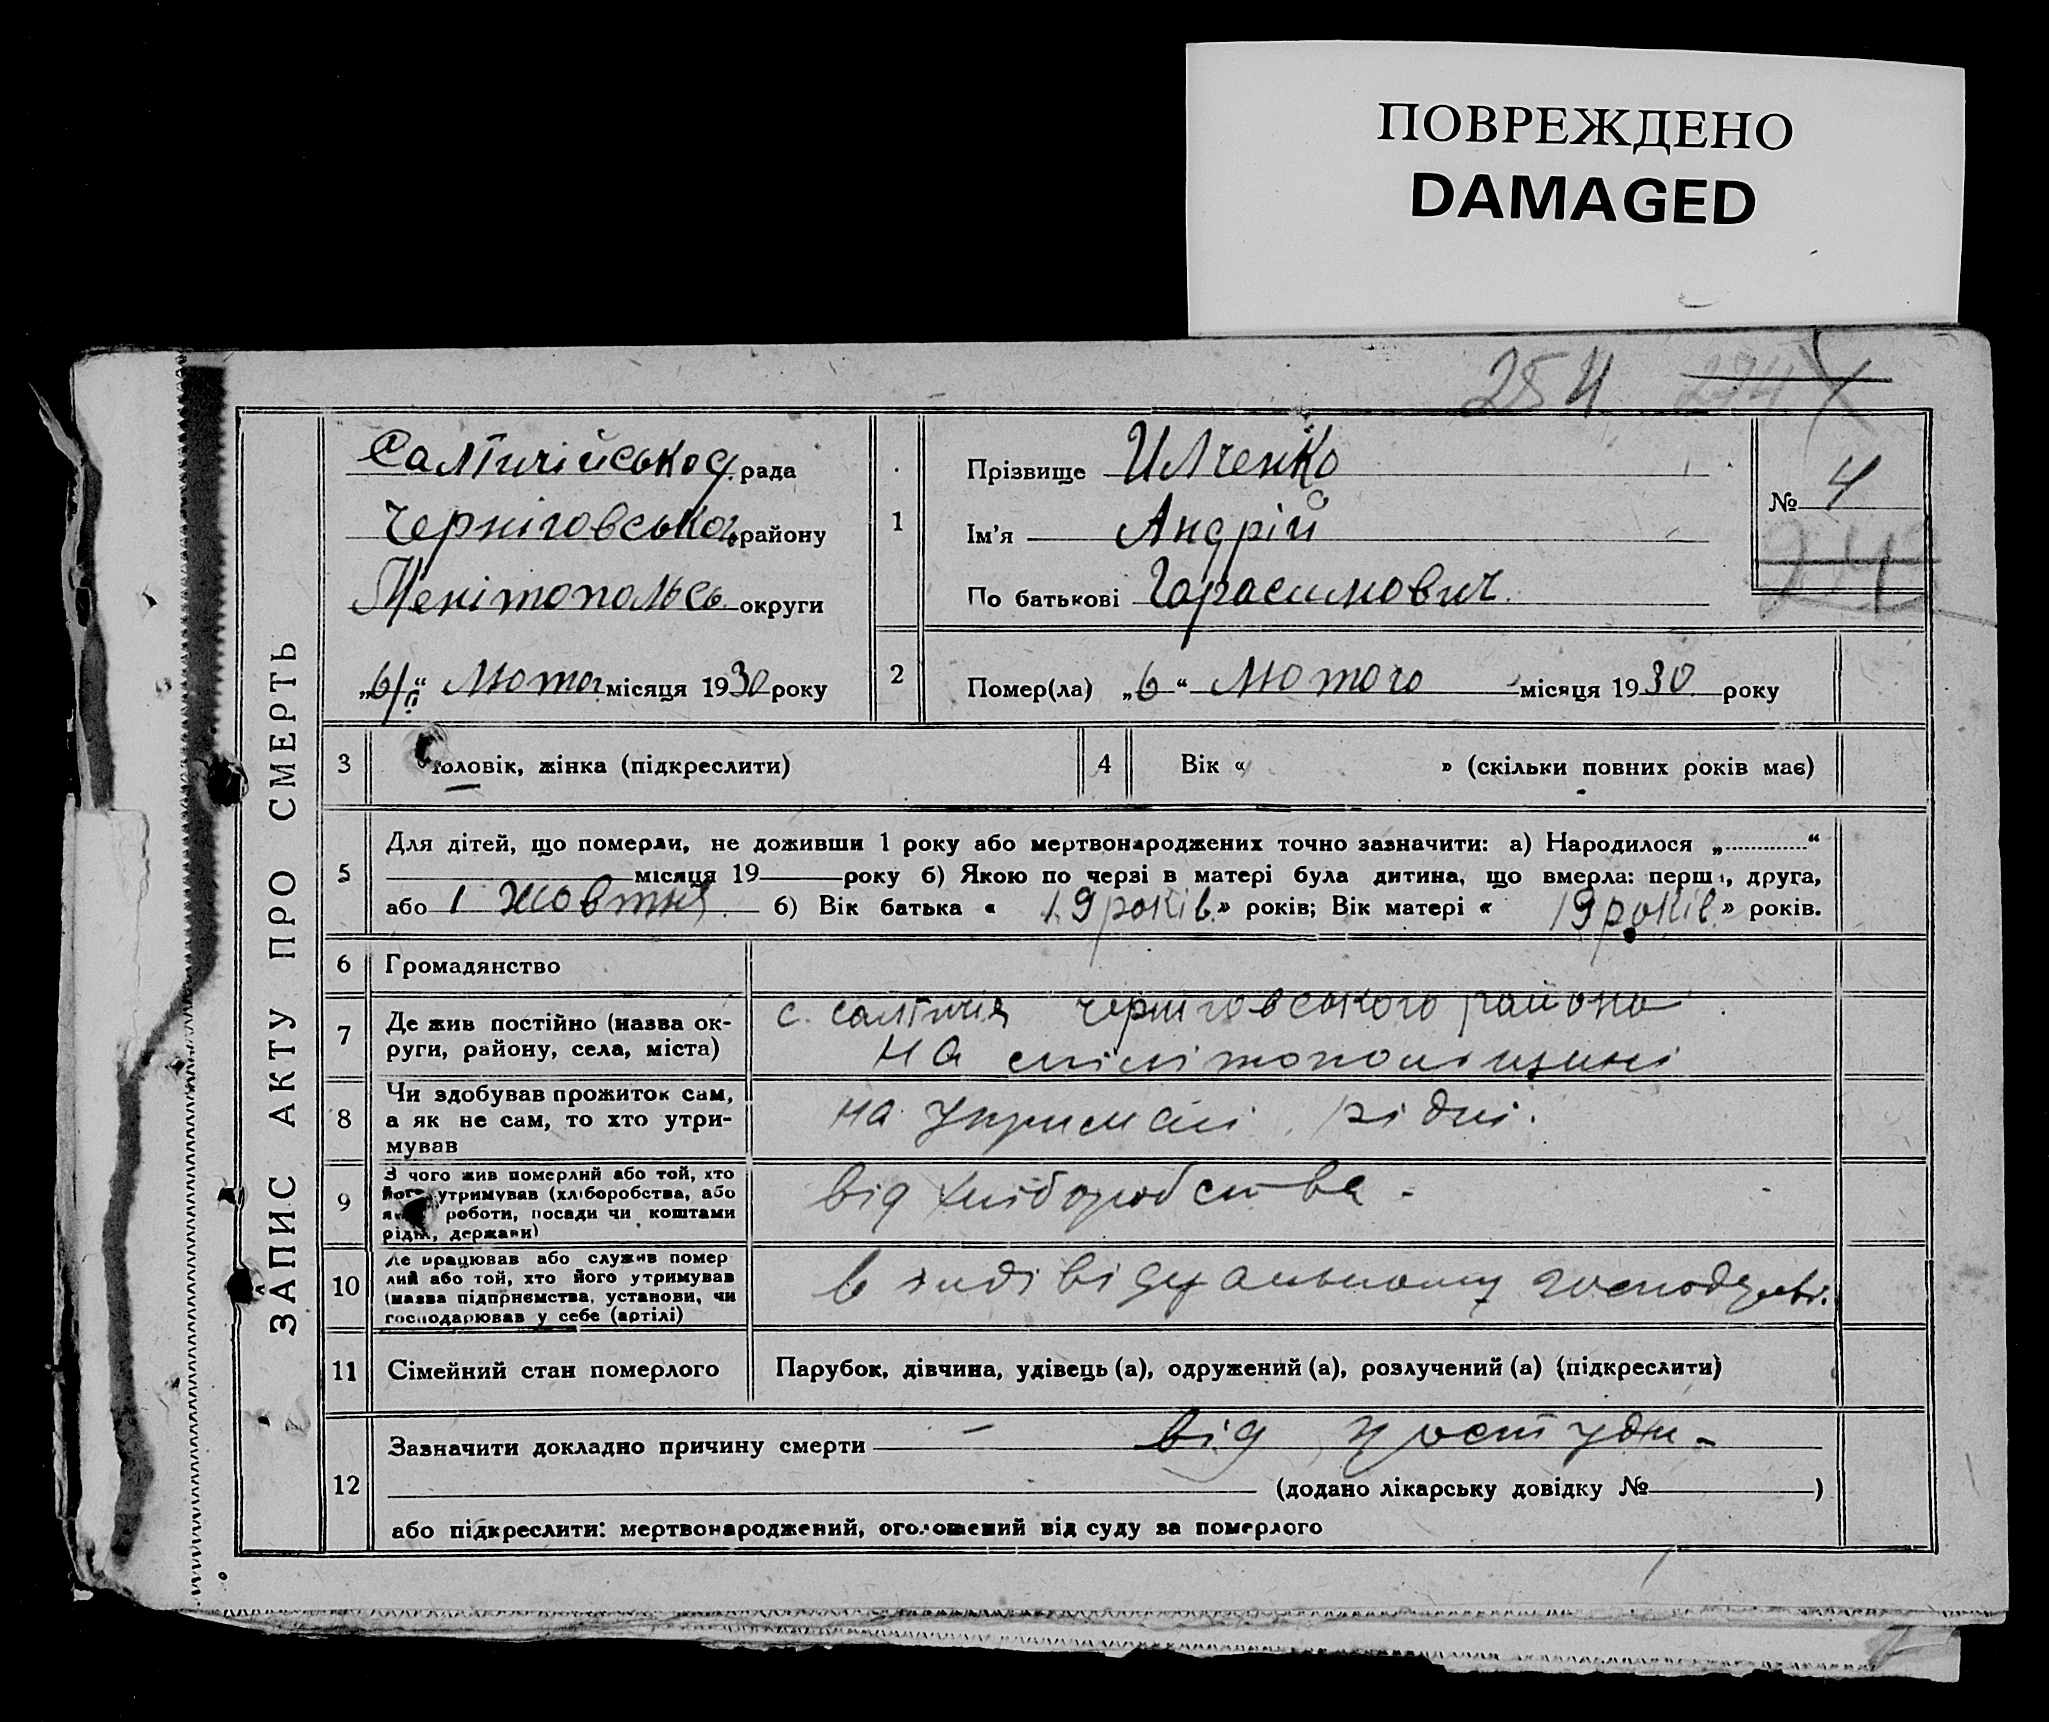 ПОВРЕЖДЕНО
DAMAGED
254 274
ЗАПИС АКТУ ПРО СМЕРТЬ
Салтичійської рада
Чернiговського району
округи
„6/ІІ“ Лютого місяця 1930 року
1
Прізвище Илченко
Ім'я Андрій
По батькові Гарасимович
№ 4
2
Помер(ла) „6“ Лютого місяця 1930 року
3
Чоловік, жінка (підкреслити)
4
Вік « » (скільки повних років має)
5
Для дітей, що померли, не доживши 1 року або мертвонароджених точно зазначити: а) Народилося „ “
місяця 19 року б) Якою по черзі в матері була дитина, що вмерла: перша, друга,
або 1 жовтня б) Вік батька « 19 років » років; Вік матері « 19 років » років.
6
Громадянство
7
Де жив постійно (назва ок-
руги, району, села, міста)
с. Салтичія Чернiговського района
на
8
Чи здобував прожиток сам,
а як не сам, то хто утри-
мував
на утриманi рiднi.
9
З чого жив померлий або той, хто
його утримував (хліборобства, або
роботи, посади чи коштами
рідні, держави)
від хліборобства.
10
Де працював або служив помер
лий або той, хто його утримував
(назва підприємства, установи, чи
господарював у себе (артілі)
в індівідуальному господарстві.
11
Сімейний стан померлого
Парубок, дівчина, удівець (а), одружений (а), розлучений (а) (підкреслити)
12
Зазначити докладно причину смерти – від простуди –
(додано лікарську довідку № )
або підкреслити: мертвонароджений, оголошений від суду за померлого